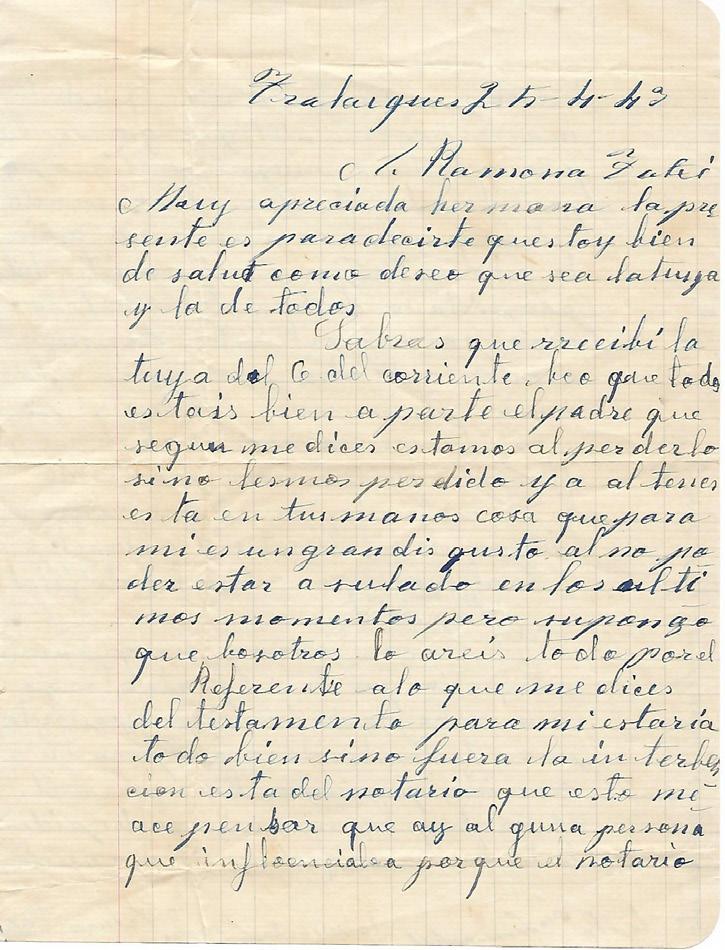 Fralarques 25-4-43
A. Ramona Fateé
Muy apreciada hermana la pre
sente es para decirte questoy bien
de salut como deseo que sea la tuya
y la de todos
Sabras que rrecibi la
tuya del 6 del corriente, beo que todos
estais bien a parte el padre que
segun me dices estamos al perderlo
sino lesmos perdido y a al tener
esta en tus manos cosa que para
mi es un gran disgusto al no po
der estar a su lado en los ulti
mos momentos pero supongo
que bosotros lo areis todo por el
Referente a lo que me dices
del testamento para mi estaria
todo bien sino fuera la interben
cion esta del notario que esto me
ace pensar que ay al guna persona
que influenciaba porque el notario